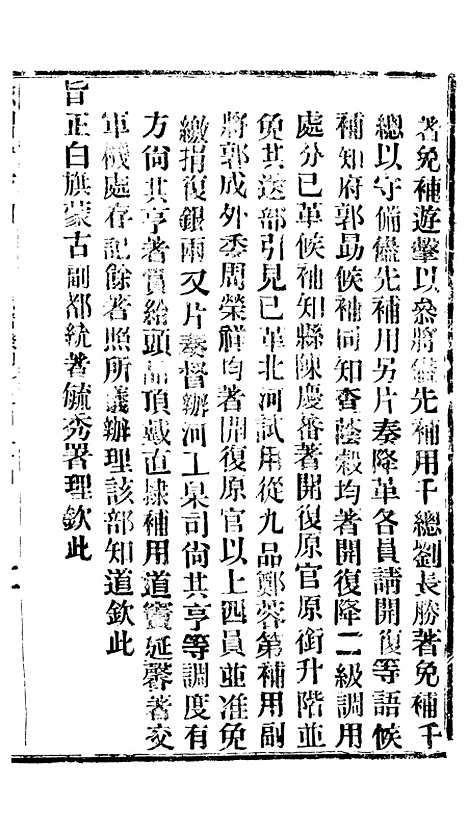 著免補遊擊以參將儘先補用千總劉長勝著免補千
總以守備儘先補用另片奏降革各員請開復等語候
補知府郭勗候補同知查蔭穀均著開復降二級調用
處分已革候補知縣陳慶蕃著開復原官原銜升階並
免其送部引見已革北河試用從九品鄭蓉第補用副
將郭成外委周榮祥均著開復原官以上四員並准免
繳捐復銀兩又片奏督辦河工臬司尙其亨等調度有
方尙其亨著賞給頭品頂戴直隸補用道竇延馨著交
軍機處存記餘著照所議辦理該部知道欽此
旨正白旗蒙古副都統著毓秀署理欽此